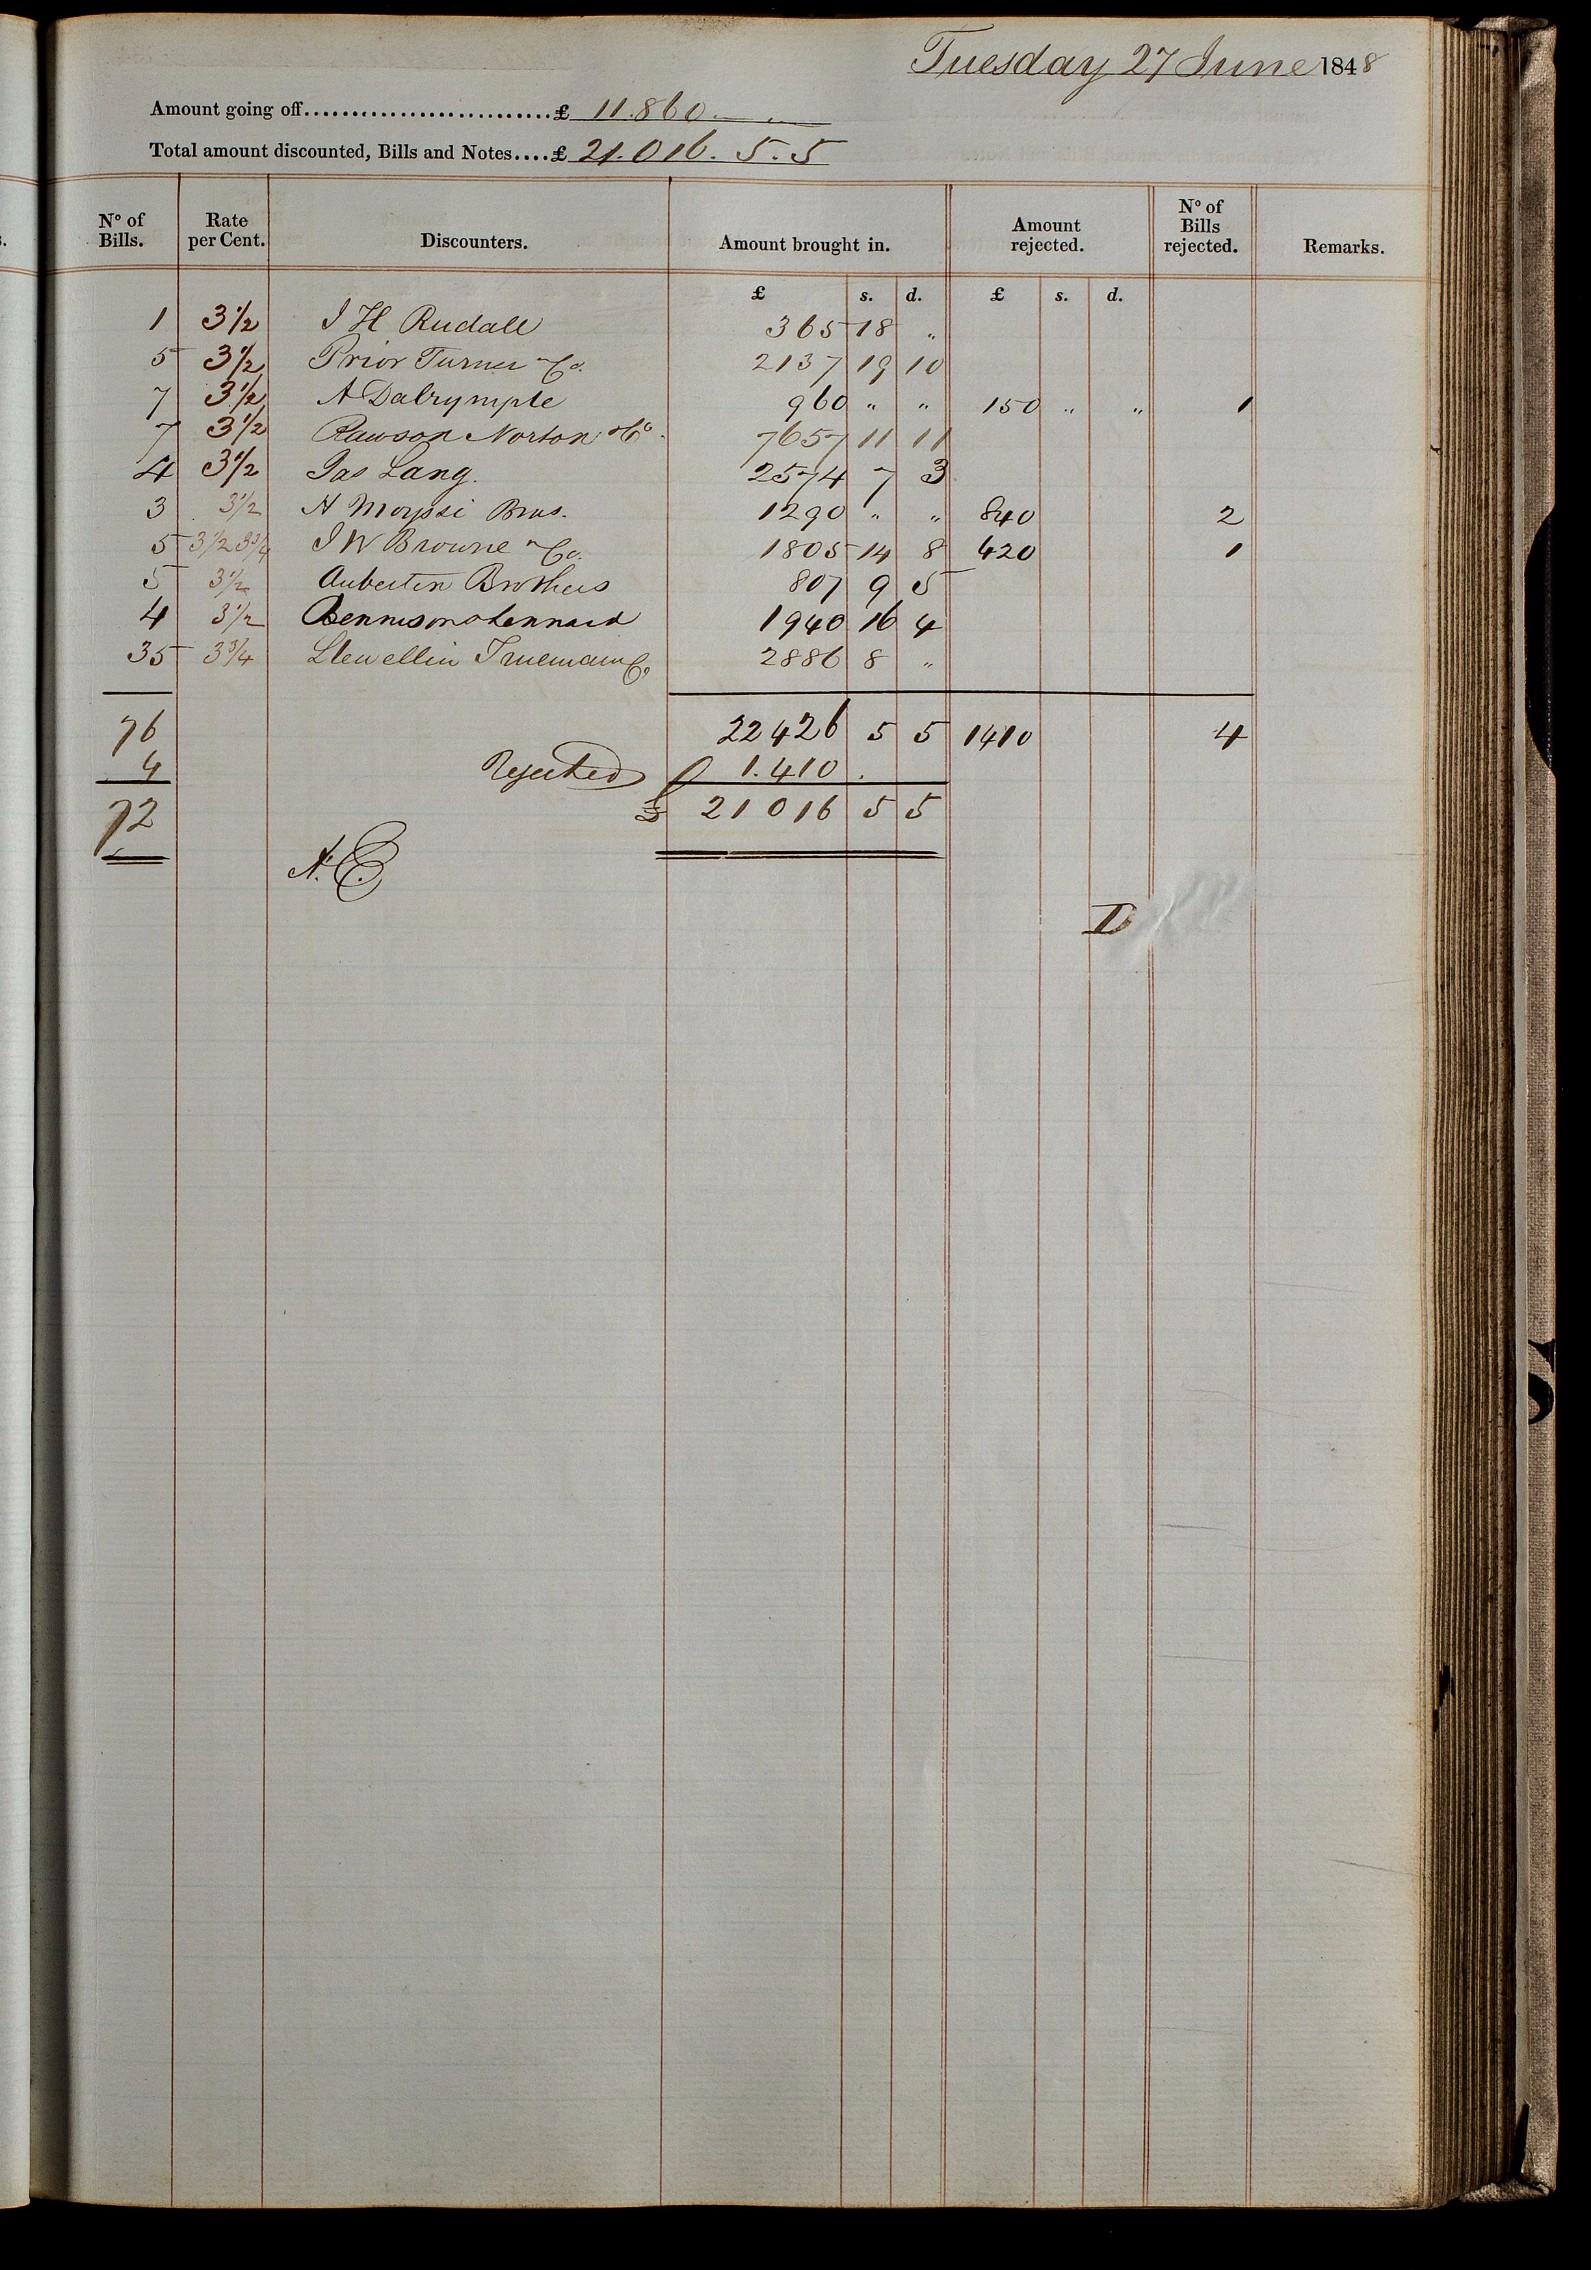 Tuesday 27 June 1848
Amount going off...........................£ 11.860. — „
Total amount discounted, Bills and Notes....£ 21.016. 5. 5
Nº of Bills. Rate per Cent. Discounters. Amount brought in. Amount rejected. Nº of Bills rejected. Remarks.
£ s. d. £ s. d.
1 3½ J H Rudall 365 18 „
5 3½ Prior Turner & Co. 2137 19 10
7 3½ A Dalrymple 960 „ „ 150 „ „ 1
7 3½ Rawson Norton & Co. 7657 11 11
4 3½ Jas Lang. 2574 7 3
3 3½ H Moysi Bros. 1290 „ „ 840 2
5 3½ 3¾ J W Browne & Co. 1805 14 8 420 1
5 3½ Aubertin Brothers 807 9 5
4 3½ 1940 16 4
35 3¾ Llewellin Trueman & Co 2886 8 „
76 22426 5 5 1410 4
4 Rejected 1.410 .
72 £ 21016 5 5
A. C.
D